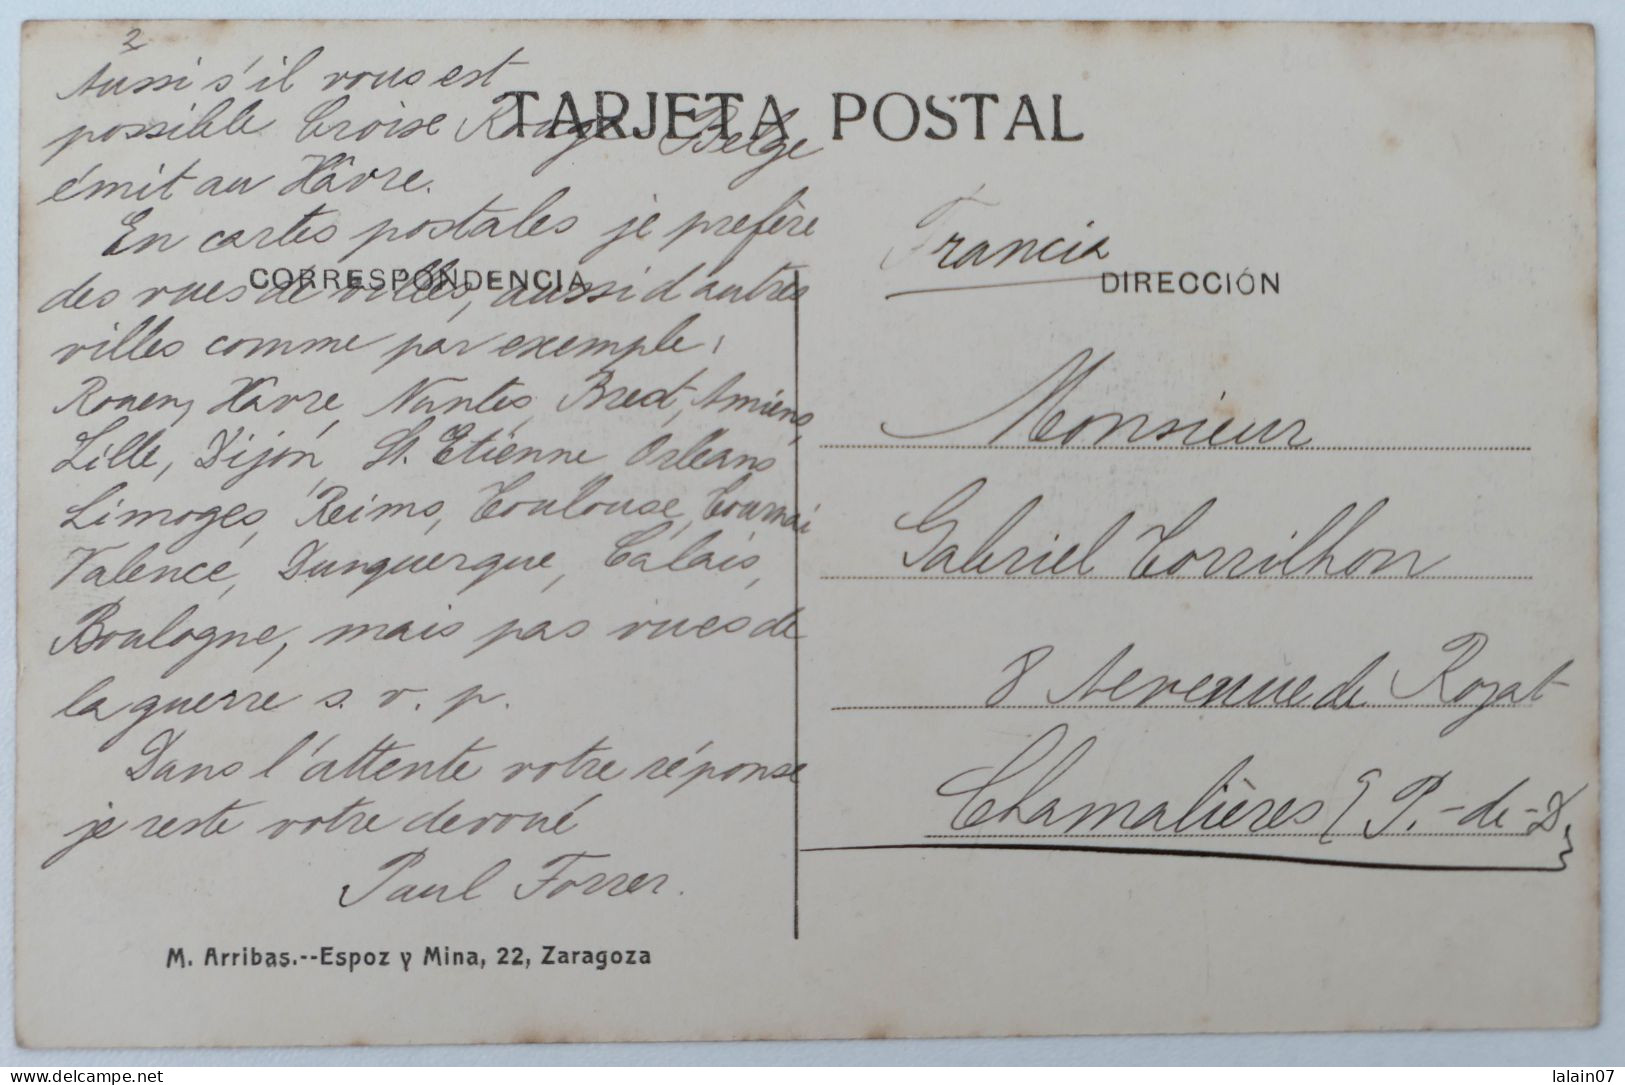 2
Aussi s'il vous est
possible Croise Rouge Belge
émit au Hâvre.
En cartes postales je prefère
des vues de villes, aussi d'autres
villes comme par exemple:
Rouen, Hâvre, Nantes, Brest, Amiens,
Lille, Dijón, St. Etienne, Orleans
Limoges, Reims, Toulouse, Tournai
Valence, Dunquerque, Calais,
Boulogne, mais pas vues de
la guerre s. v. p.
Dans l'attente votre réponse
je reste votre devoué
Paul Forrer.
TARJETA POSTAL
CORRESPONDENCIA
DIRECCIÓN
Francia
Monsieur
Gabriel Torrilhon
8 Aevenue de Royat
Chamalières, P.-de-D.
M. Arribas.--Espoz y Mina, 22, Zaragoza
delcampe.net
lalain07